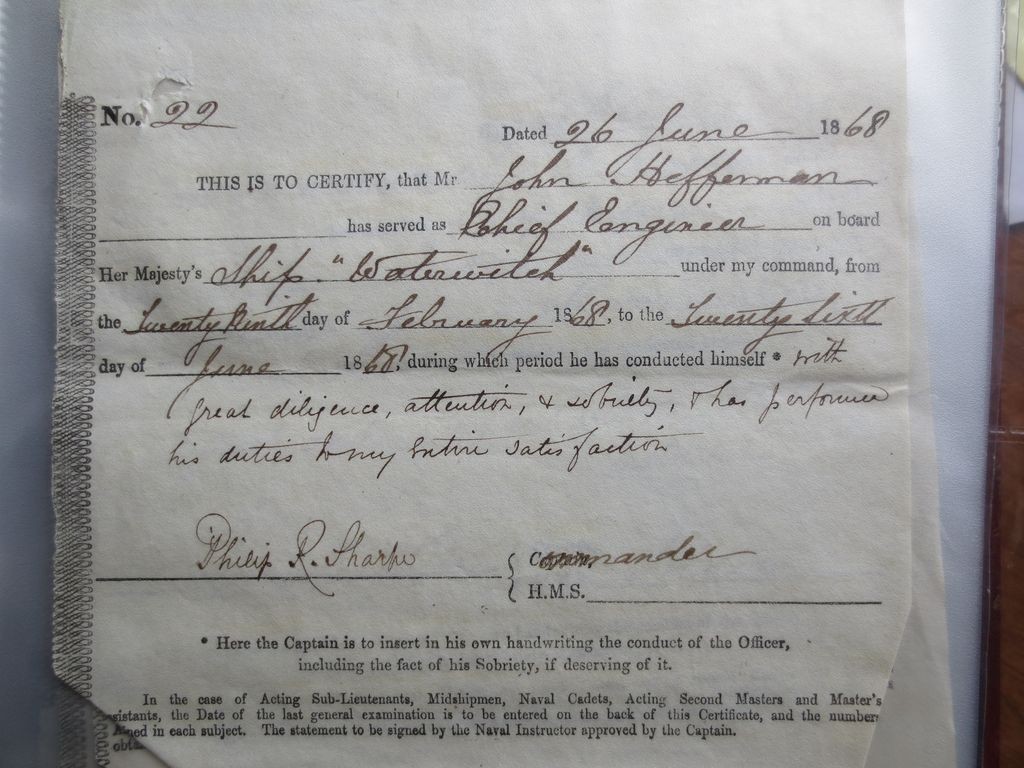 No. 22
Dated 26 June 1868
THIS IS TO CERTIFY, that Mr John Heffernan
has served as Chief Engineer on board
Her Majesty's Ship "Waterwitch" under my command, from
the Twenty Ninth day of February 1868, to the Twenty Sixth
day of June 1868, during which period he has conducted himself * with
great diligence, attention, & sobriety, & has performed
his duties to my entire satisfaction
Philip R. Sharpe { Commander
H.M.S.
* Here the Captain is to insert in his own handwriting the conduct of the Officer,
including the fact of his Sobriety, if deserving of it.
In the case of Acting Sub-Lieutenants, Midshipmen, Naval Cadets, Acting Second Masters and Master's
sistants, the Date of the last general examination is to be entered on the back of this Certificate, and the numbers
ned in each subject. The statement to be signed by the Naval Instructor approved by the Captain.
obta